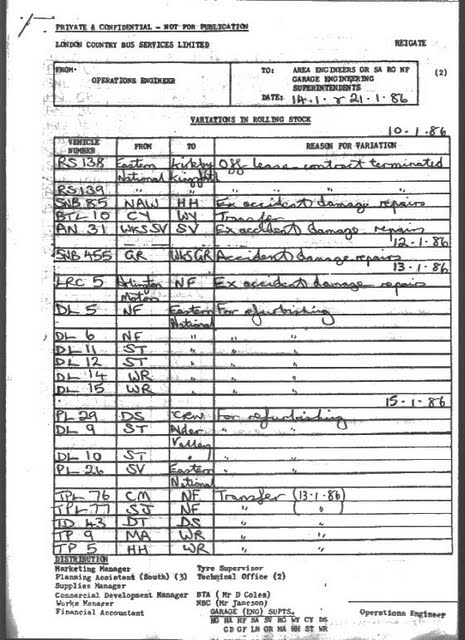 PRIVATE & CONFIDENTIAL - NOT FOR PUBLICATION
LONDON COUNTRY BUS SERVICES LIMITED REIGATE
FROM- OPERATIONS ENGINEER TO: AREA ENGINEERS GR SA RG NF (2)
GARAGE ENGINEERING
SUPERINTENDENTS
DATE: 14.1. & 21.1.86
VARIATIONS IN ROLLING STOCK
10.1.86
VEHICLE NUMBER FROM TO REASON FOR VARIATION
RS 138 Eastern National Kirkby Off lease contract terminated
RS 139 " " " " "
SNB 85 NAW HH Ex accident damage repairs
BTL 10 CY WY Transfer
AN 31 WKS SV SV Ex accident damage repairs
12.1.86
SNB 455 GR WKS GR Accident damage repairs
13.1.86
LRC 5 Arlington Motors NF Ex accident damage repairs
DL 5 NF Eastern National For refurbishing
DL 6 NF " " " "
DL 11 ST " " " "
DL 12 ST " " " "
DL 14 WR " " " "
DL 15 WR " " " "
15.1.86
PL 29 DS CRW For refurbishing
DL 9 ST Alder Valley " "
DL 10 ST " " "
PL 26 SV Eastern National " "
TPL 76 CM NF Transfer (13.1.86)
TPL 77 SJ NF " ( " )
TD 43 DT DS "
TP 9 MA WR "
TP 5 HH WR "
DISTRIBUTION
Marketing Manager Tyre Supervisor
Planning Assistant (South) (3) Technical Office (2)
Supplies Manager
Commercial Development Manager BTA (Mr D Coles)
Works Manager NBC (Mr Jameson)
Financial Accountant GARAGE (ENG) SUPTS. Operations Engineer
HG HA RF SA SV RG WY CY DS
GD GF LH GR MA HH ST WR